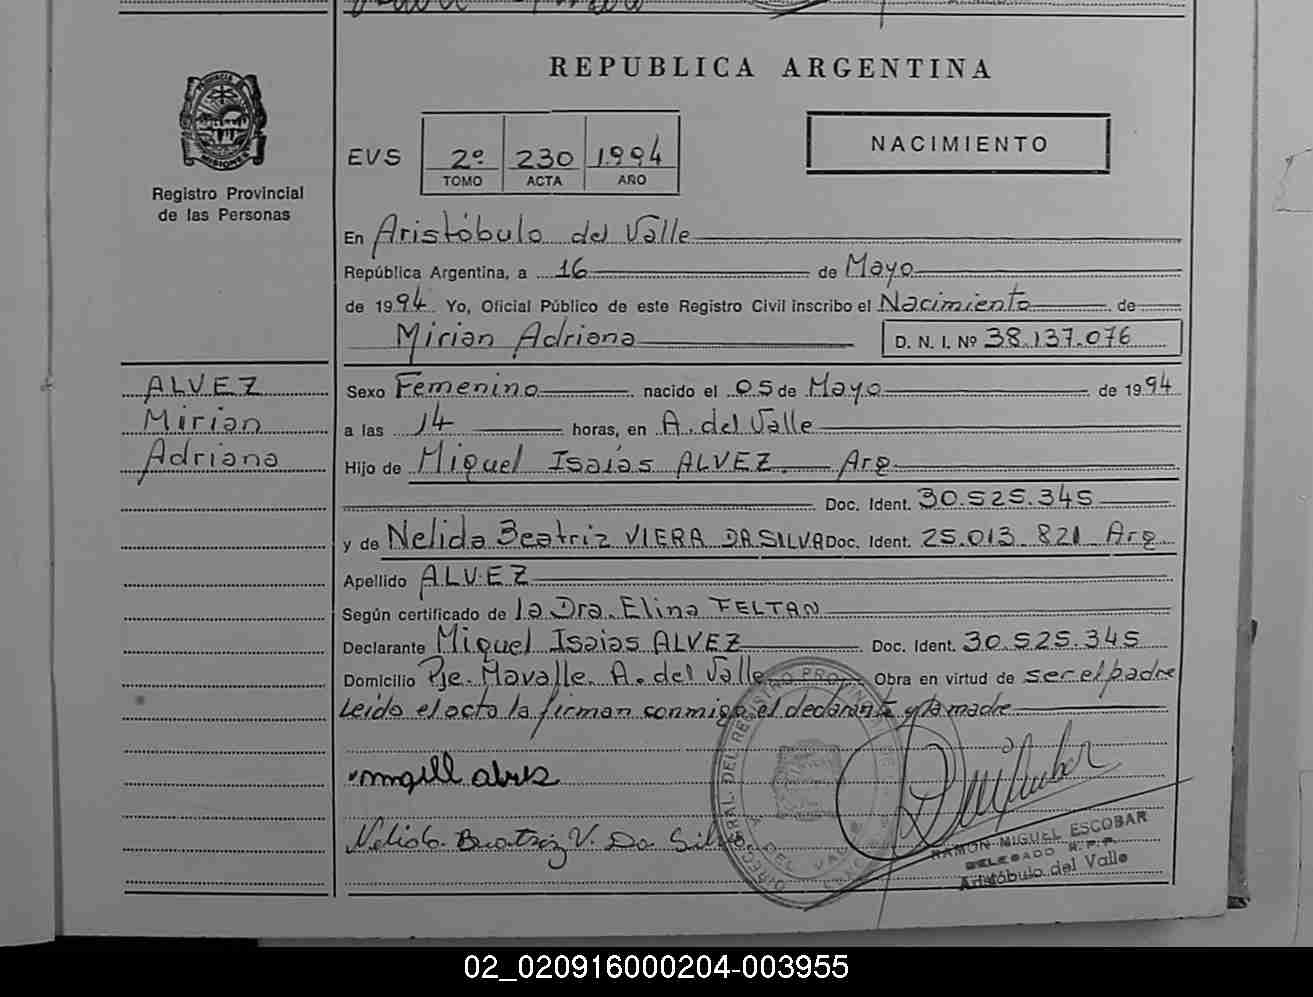 REPUBLICA ARGENTINA
PROVINCIA DE MISIONES
Registro Provincial
de las Personas
EVS 2º 230 1994
TOMO ACTA AÑO
NACIMIENTO
En Aristóbulo del Valle
República Argentina, a 16 de Mayo
de 1994 Yo, Oficial Público de este Registro Civil inscribo el Nacimiento de
Mirian Adriana D. N. I. Nº 38.137.076
ALVEZ
Mirian
Adriana
Sexo Femenino nacido el 05 de Mayo de 1994
a las 14 horas, en A. del Valle
Hijo de Miguel Isaías ALVEZ. Arg.
Doc. Ident. 30.525.345
y de Nelida Beatriz VIERA DA SILVA Doc. Ident. 25.013.821 Arg.
Apellido ALVEZ
Según certificado de la Dra. Elina FELTAN
Declarante Miguel Isaias ALVEZ Doc. Ident. 30.525.345
Domicilio Pje. Mavalle. A. del Valle Obra en virtud de ser el padre
Leida el acta la firman conmigo el declarante y la madre
Nelida Beatriz V. Da Silva
RAMON MIGUEL ESCOBAR
DELEGADO R.P.P.
Aristóbulo del Valle
02_020916000204-003955